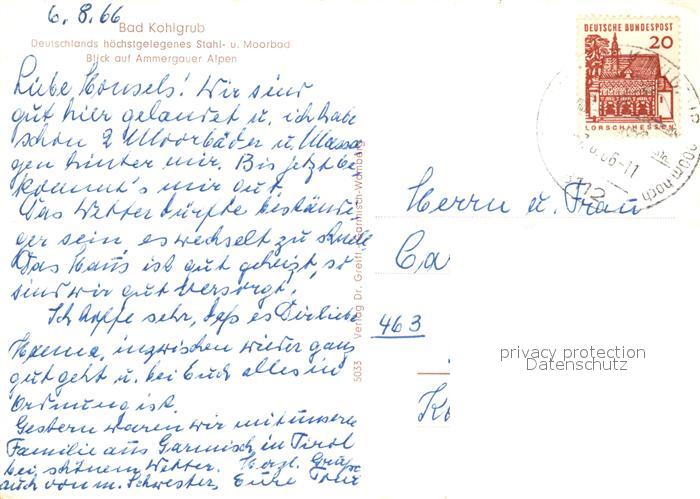 6.8.66
Bad Kohlgrub
Deutschlands höchstgelegenes Stahl- u. Moorbad
Blick auf Ammergauer Alpen
Liebe Honsels! Wir sind
gut hier gelandet u. ich habe
schon 2 Moorbäder u. Massa
gen hinter mir. Bis jetzt be
kommt's mir gut.
Das Wetter dürfte beständi
ger sein, es wechselt zu schnell
Das Haus ist gut geheizt, so
sind wir gut versorgt.
Ich hoffe sehr, daß es Dir liebe
inzwischen wieder ganz
gut geht u. bei Euch alles in
Ordnung ist.
Gestern waren wir mit unsere
Familie aus Garmisch in Tirol
bei schönem Wetter. Herzl. Grüße
auch von m. Schwester, Eure
5033 Verlag Dr. Greiff, Garmisch-Wamberg
DEUTSCHE BUNDESPOST
20
LORSCH/HESSEN
.8.66-11
noch
Herrn u. Frau
Ca
463
privacy protection
Datenschutz